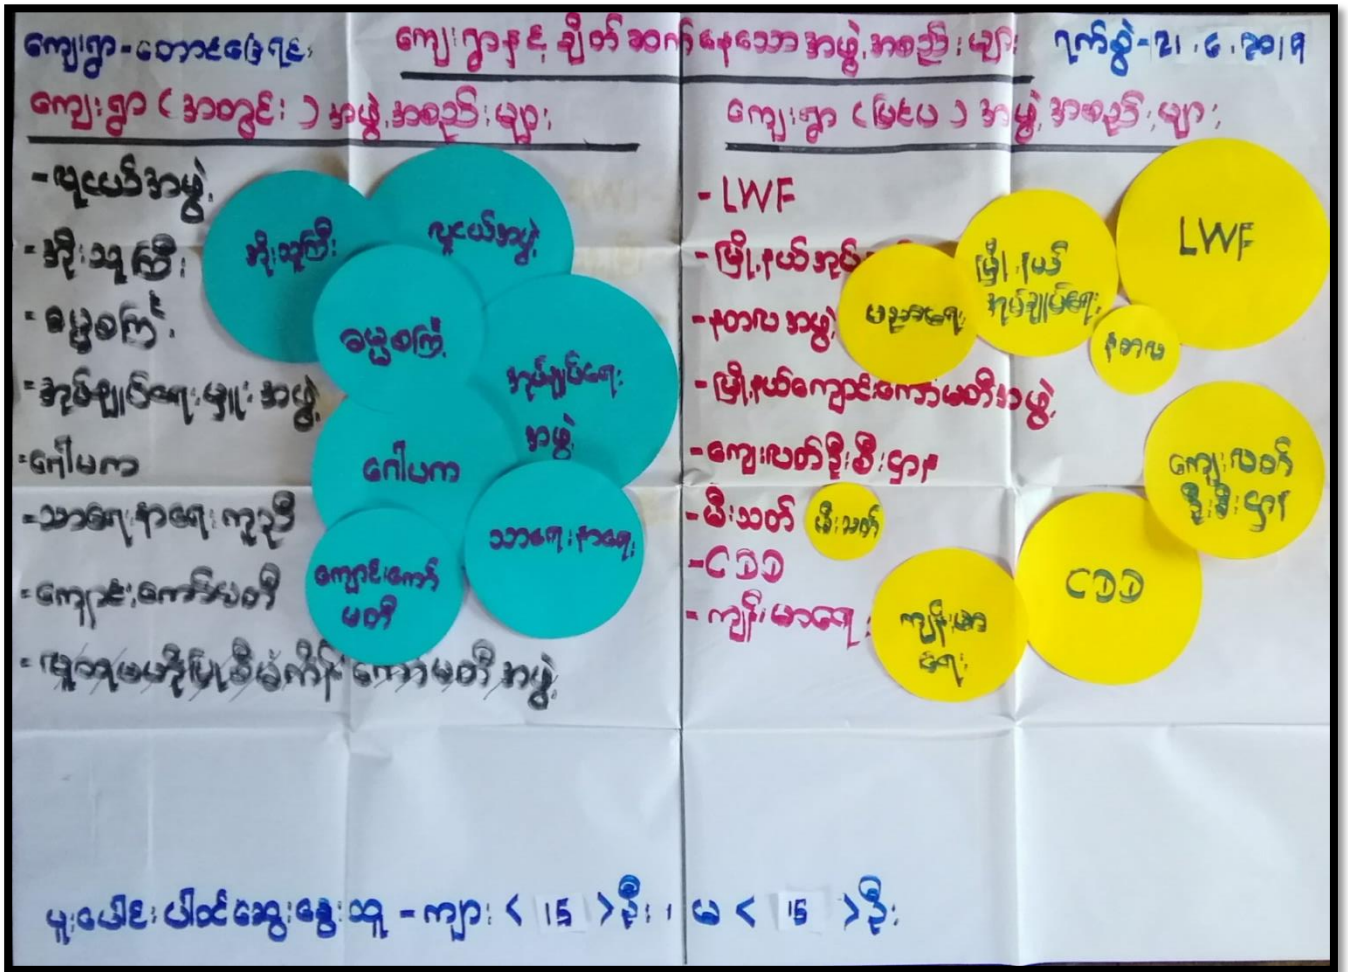 ကျေးရွာ-တောင်ခြေရင်း
ကျေးရွာနှင့် ချိတ်ဆက်နေသော အဖွဲ့အစည်းများ
ရက်စွဲ-21.6.2019
ကျေးရွာ (အတွင်း) အဖွဲ့အစည်းများ
- လူငယ်အဖွဲ့
- အိုးသူကြီး
- ဓမ္မစကြာ်
- အုပ်ချုပ်ရေးမှူးအဖွဲ့
- ဂေါပက
- သာရေးနာရေးကူညီ
- ကျောင်းကော်မတီ
- လူထုဗဟိုပြုစီမံကိန်းကော်မတီအဖွဲ့
အိုးသူကြီး
လူငယ်အဖွဲ့
ဓမ္မစကြာ
အုပ်ချုပ်ရေး
အဖွဲ့
ဂေါပက
သာရေးနာရေး
ကျောင်းကော်
မတီ
ကျေးရွာ (ပြင်ပ) အဖွဲ့အစည်းများ
- LWF
- မြို့နယ်အုပ်
- နတလအဖွဲ့
- မြို့နယ်ကျောင်းကော်မတီအဖွဲ့
- ကျေးလက်ဦးစီးဌာန
- မီးသတ်
- CDD
- ကျန်းမာရေး
ပညာရေး
မြို့နယ်
အုပ်ချုပ်ရေး
LWF
နတလ
ကျေးလက်
ဦးစီးဌာန
မီးသတ်
CDD
ကျန်းမာ
ရေး
ပူးပေါင်းပါဝင်ဆွေးနွေးသူ - ကျား < 15 > ဦး၊ မ < 15 > ဦး